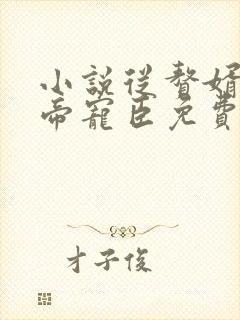 小說從贅婿
帝寵臣免費
才子俊